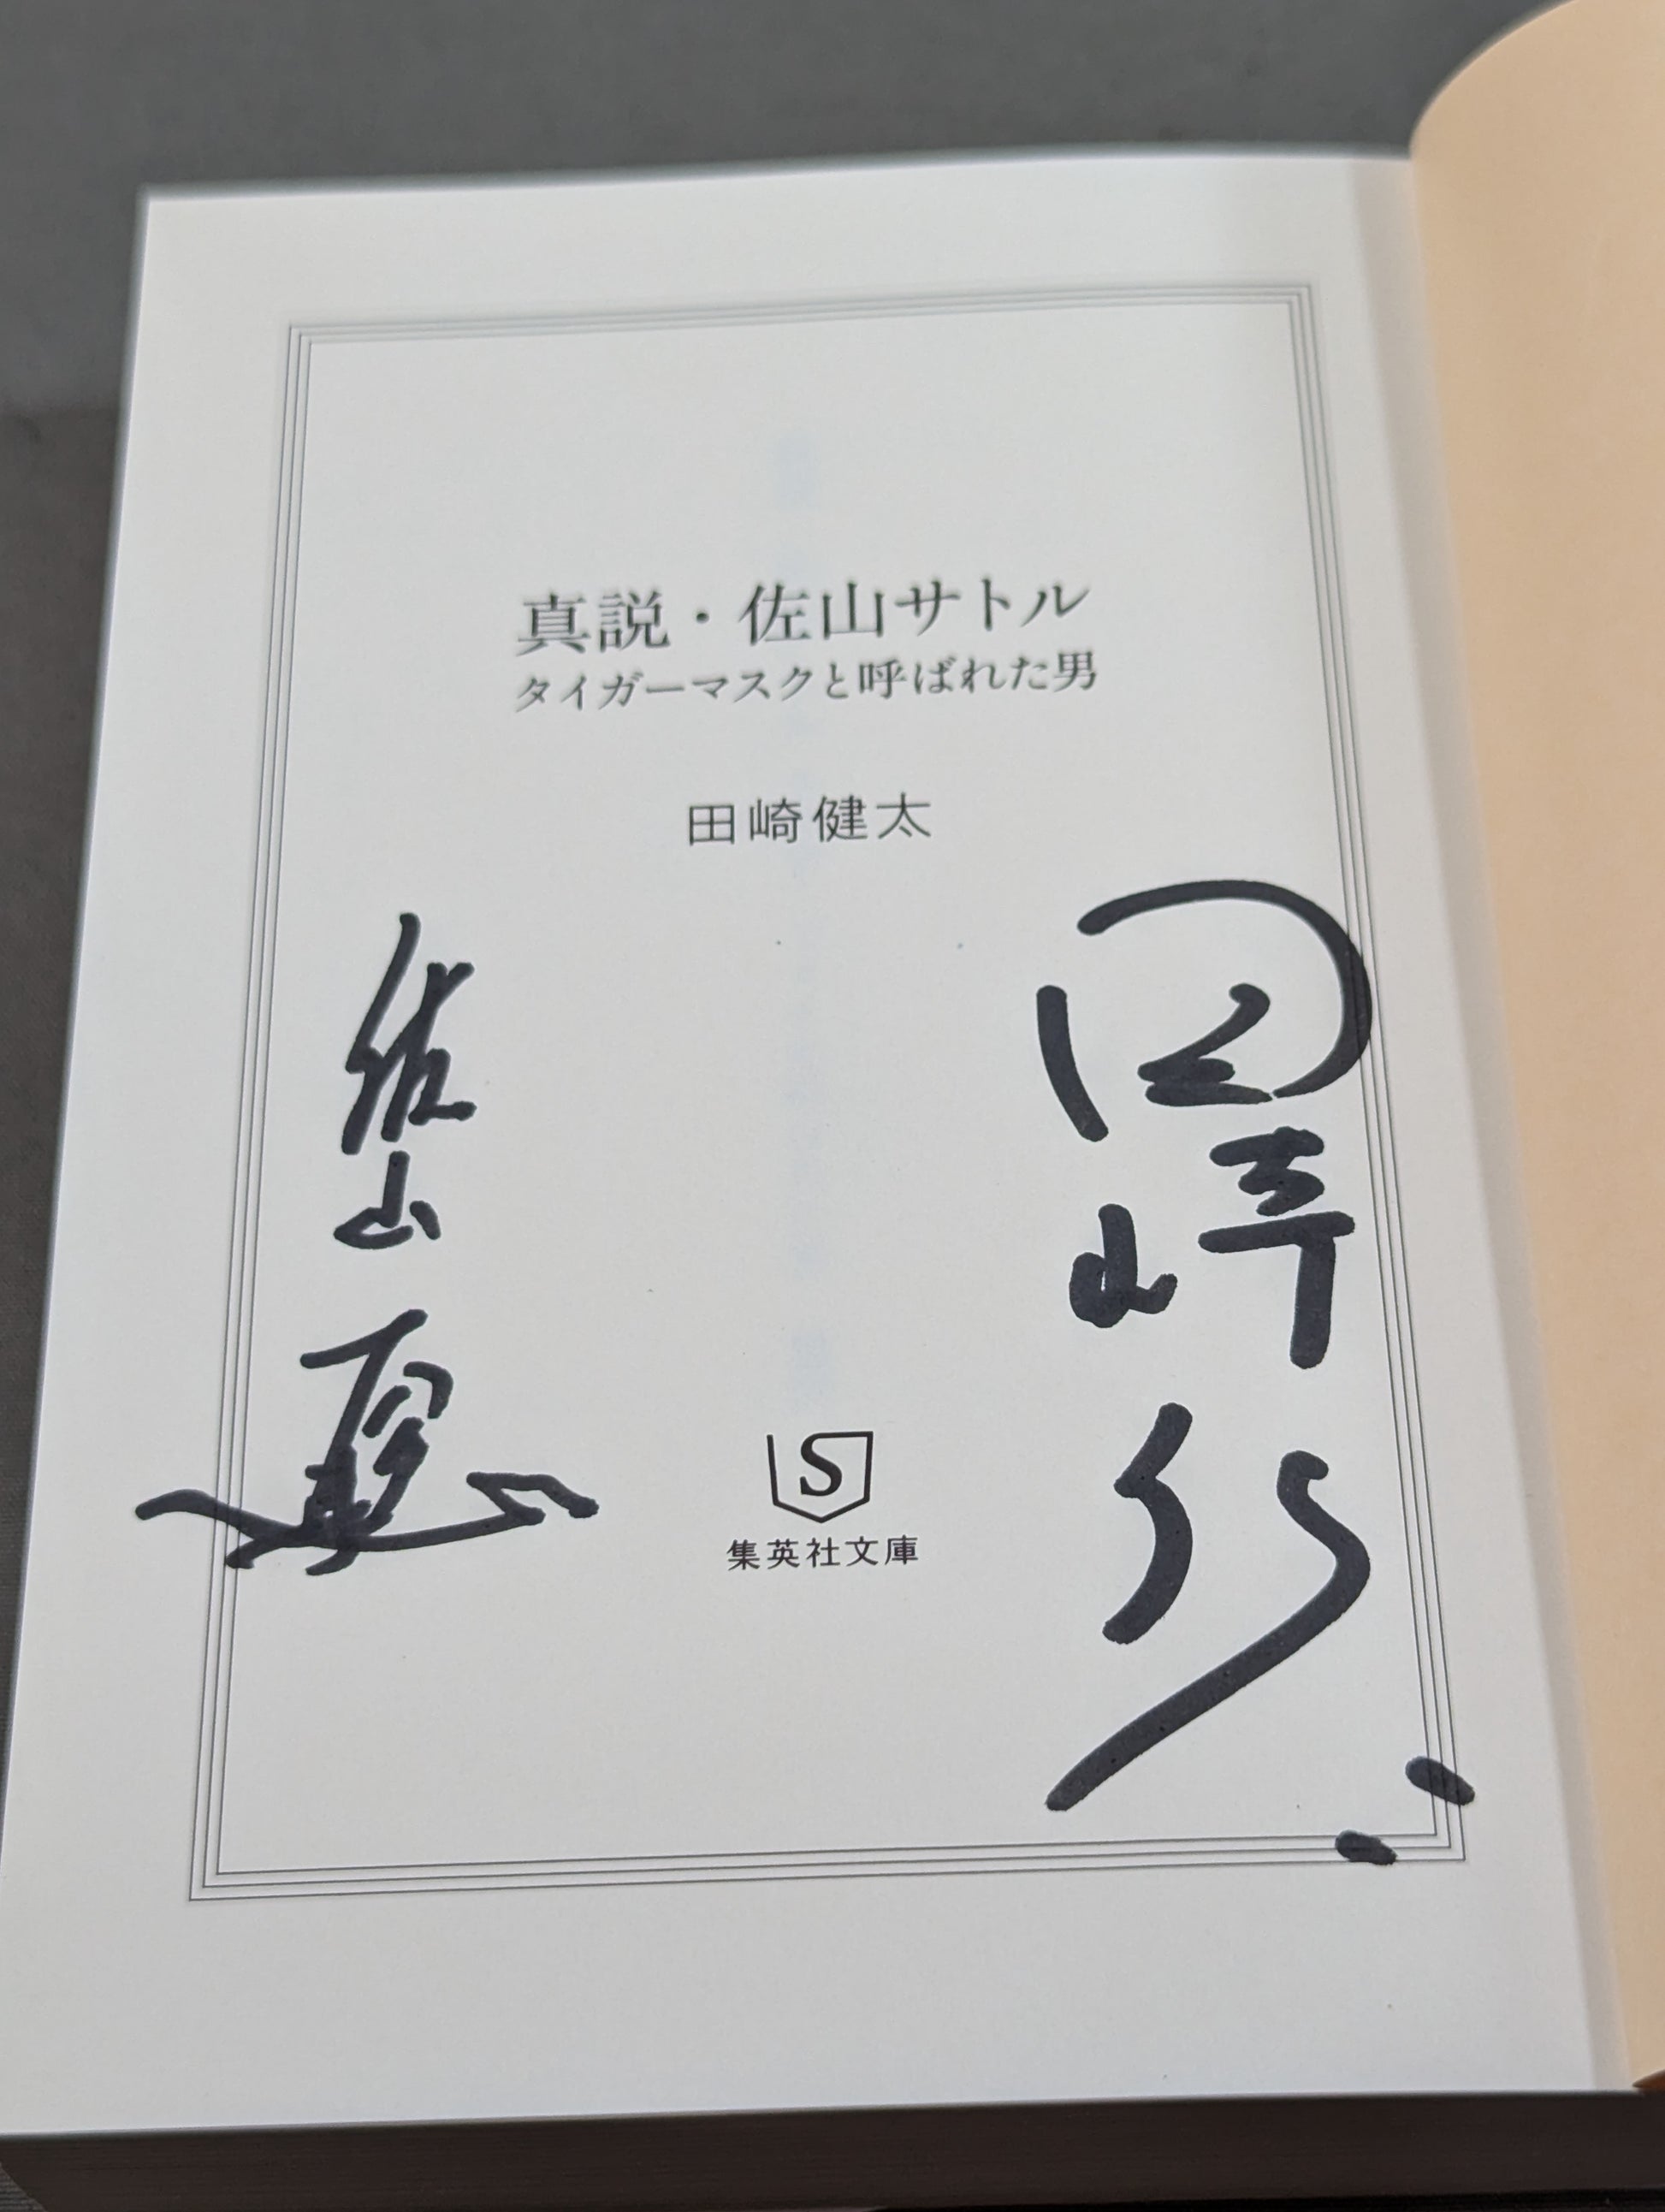 真説・佐山サトル
タイガーマスクと呼ばれた男
田崎健太
田崎
佐山
S
集英社文庫